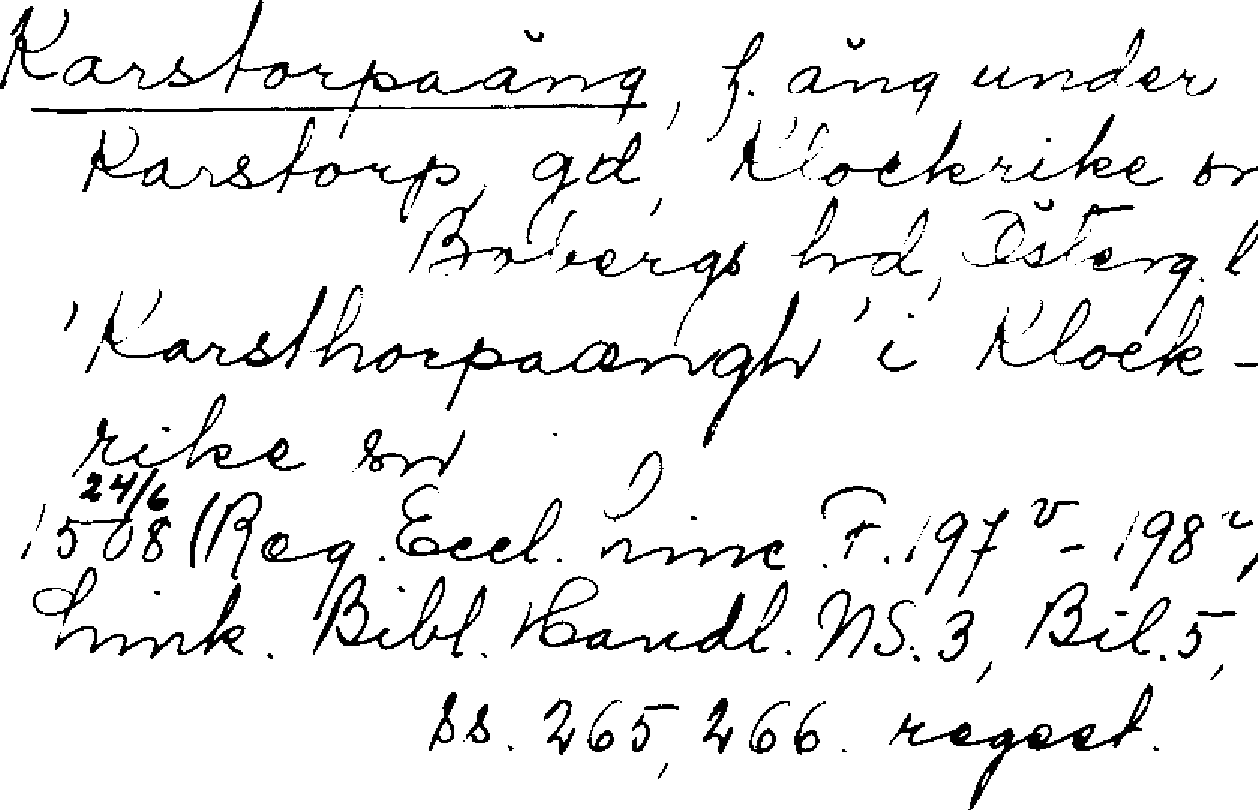 Karstorpaäng, f. äng under
Karstorp, gd, Klockrike sn
Bobergs hd, Österg. l
'Karsthorpaængh' i Klock-
rike sn
24/6
1508 (Reg. Eccl. Linc F. 197v - 198v,
Link. Bibl. Handl. NS. 3, Bil. 5,
ss. 265, 266. regest.